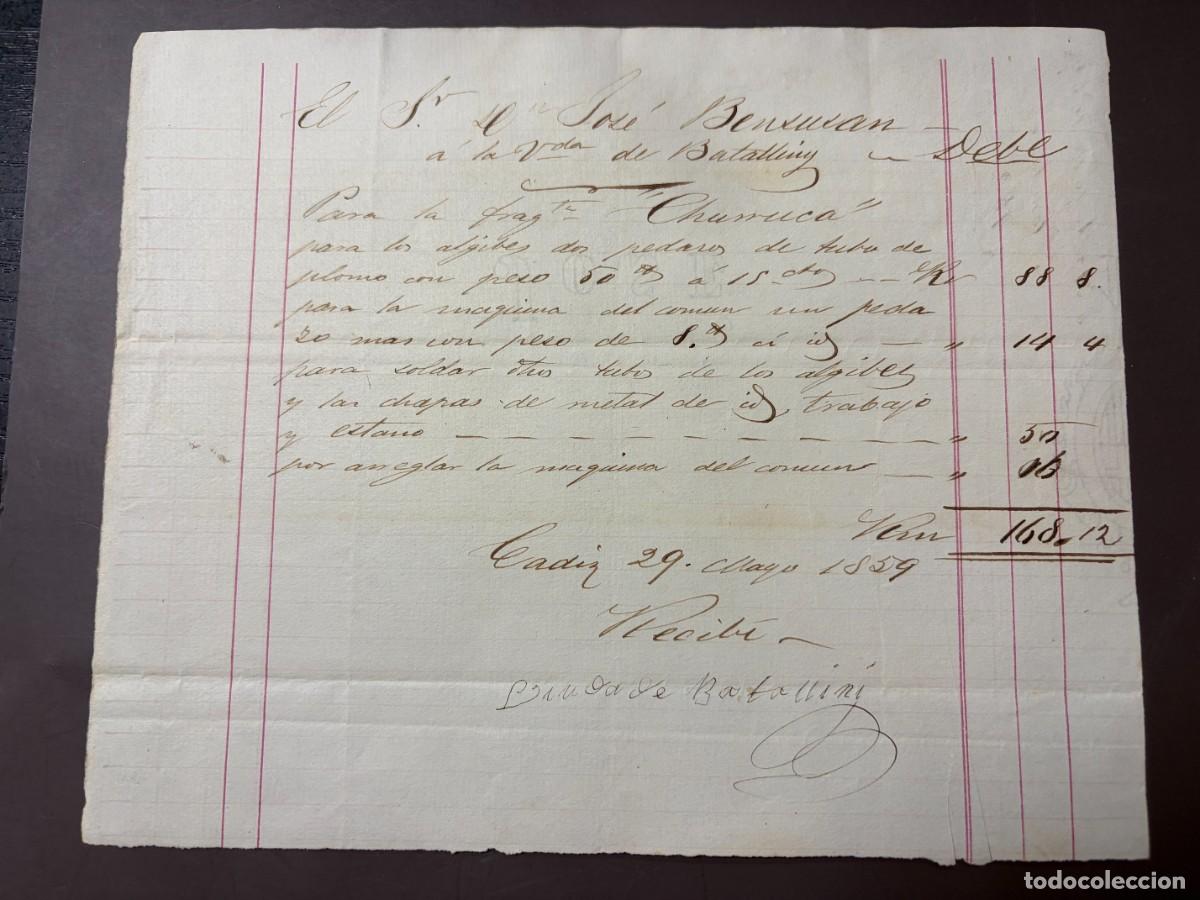 El Sr Dn José Bensusan – Debe
á la Vda de Batalliny
Para la fragta "Churruca"
para los aljibes dos pedasos de tubo de
plomo con peso 50 á 15 ctos — Rr 88 8.
para la maquina del comun un peda
zo mas con peso de 8. á id — " 14 4
para soldar dhos tubos de los aljibes
y las chapas de metal de id, trabajo
y estaño — — — — — — — — — " 50
por arreglar la maquina del comun — " 16
Rvn 168.12
Cadiz 29. Mayo 1859
Recibi –
Biuda de Batallini
todocoleccion